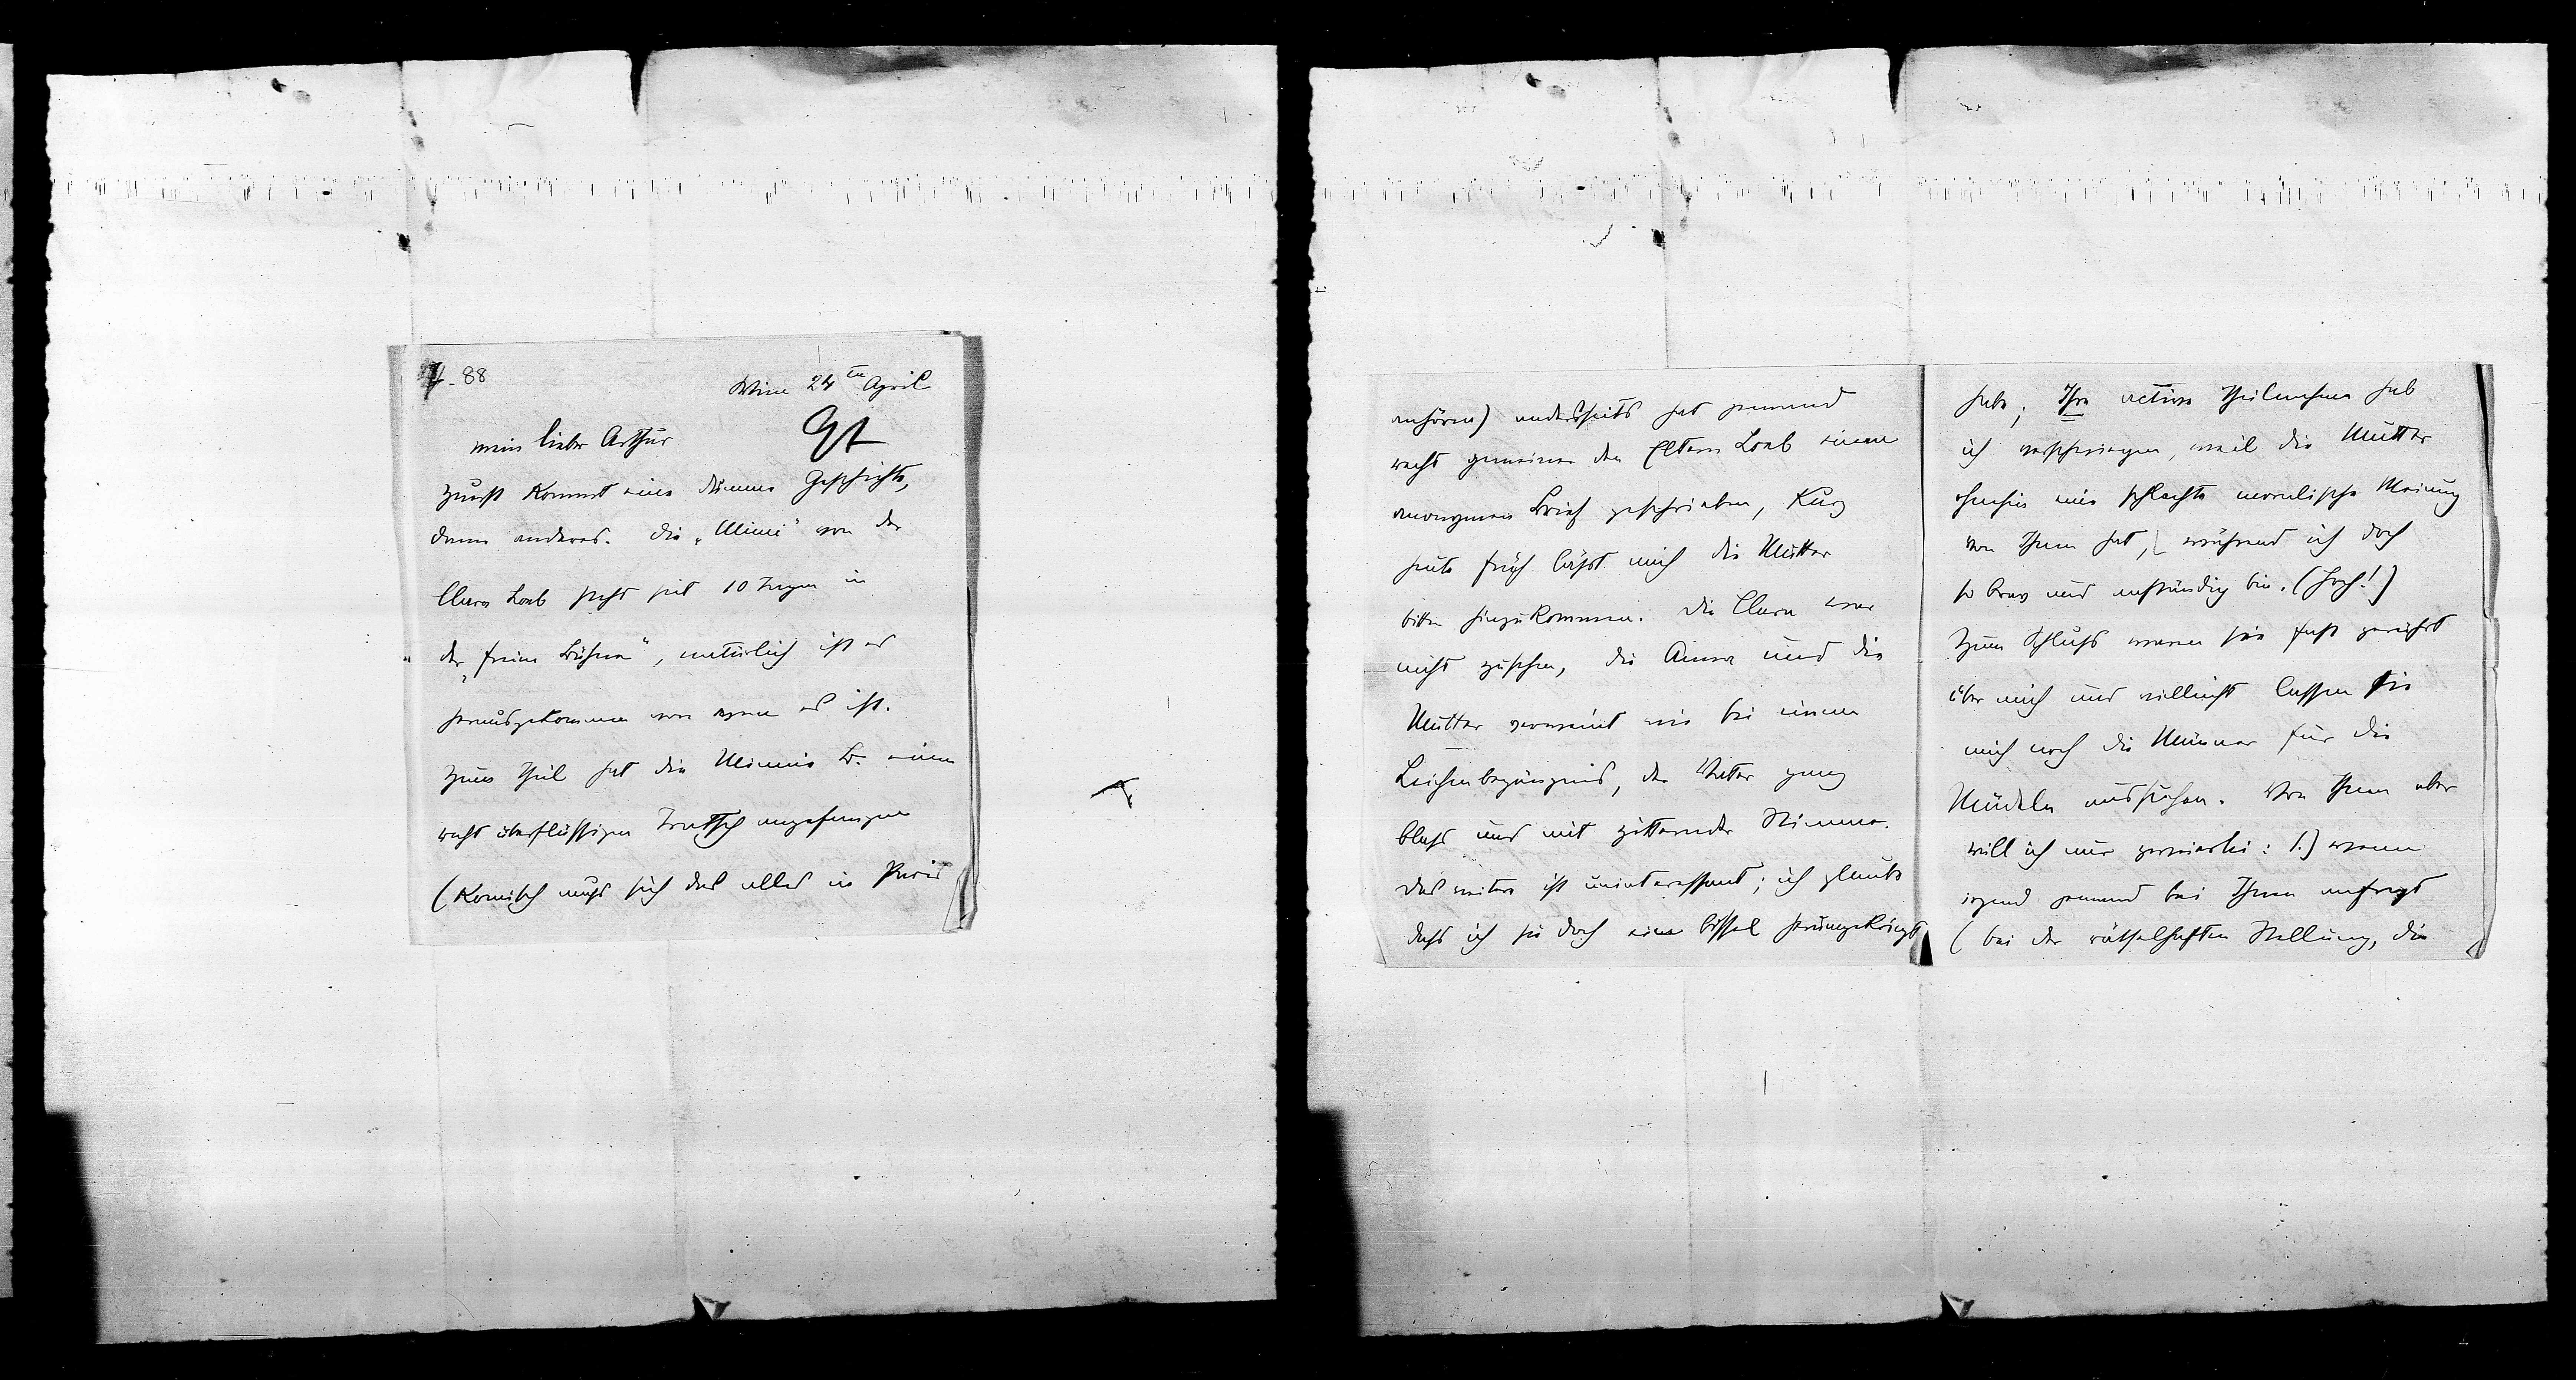 88
Wien 24ten April
97
mein lieber Arthur
zuerst kommt eine dumme Geschichte,
dann anderes. die „Mimi“ von der
Clara Loeb steht seit 10 Tagen in
der „freien Bühne“, natürlich ist es
herausgekommen von wem es ist.
zum Theil hat die Minnie B. einen
recht überflüssigen Tratsch angefangen
(komisch muss sich das alles in Paris
anhören) anderseits hat jemand
recht gemeiner den Eltern Loeb einen
anonymen Brief geschrieben, kurz
heute früh lässt mich die Mutter
bitten hinzukommen. die Clara war
nicht zusehen, die Anna und die
Mutter verweint wie bei einem
Leichenbegängnis, der Vater ganz
blass und mit zitternder Stimme.
das weitere ist uninteressant; ich glaube
dass ich sie doch ein bissel herumgekriegt
habe; Ihre active Theilnahme hab
ich verschwiegen, weil die Mutter
ohnehin eine schlechte moralische Meinung
von Ihnen hat, während ich doch
so brav und anständig bin. (Hoch!)
zum Schluss waren sie fast gerührt
über mich und vielleicht lassen sie
mich noch die Männer für die
Mädeln aussuchen. Von Ihnen aber
will ich nur zweierlei: 1.) wenn
irgend jemand bei Ihnen anfragt
(bei der rätselhaften Stellung, die